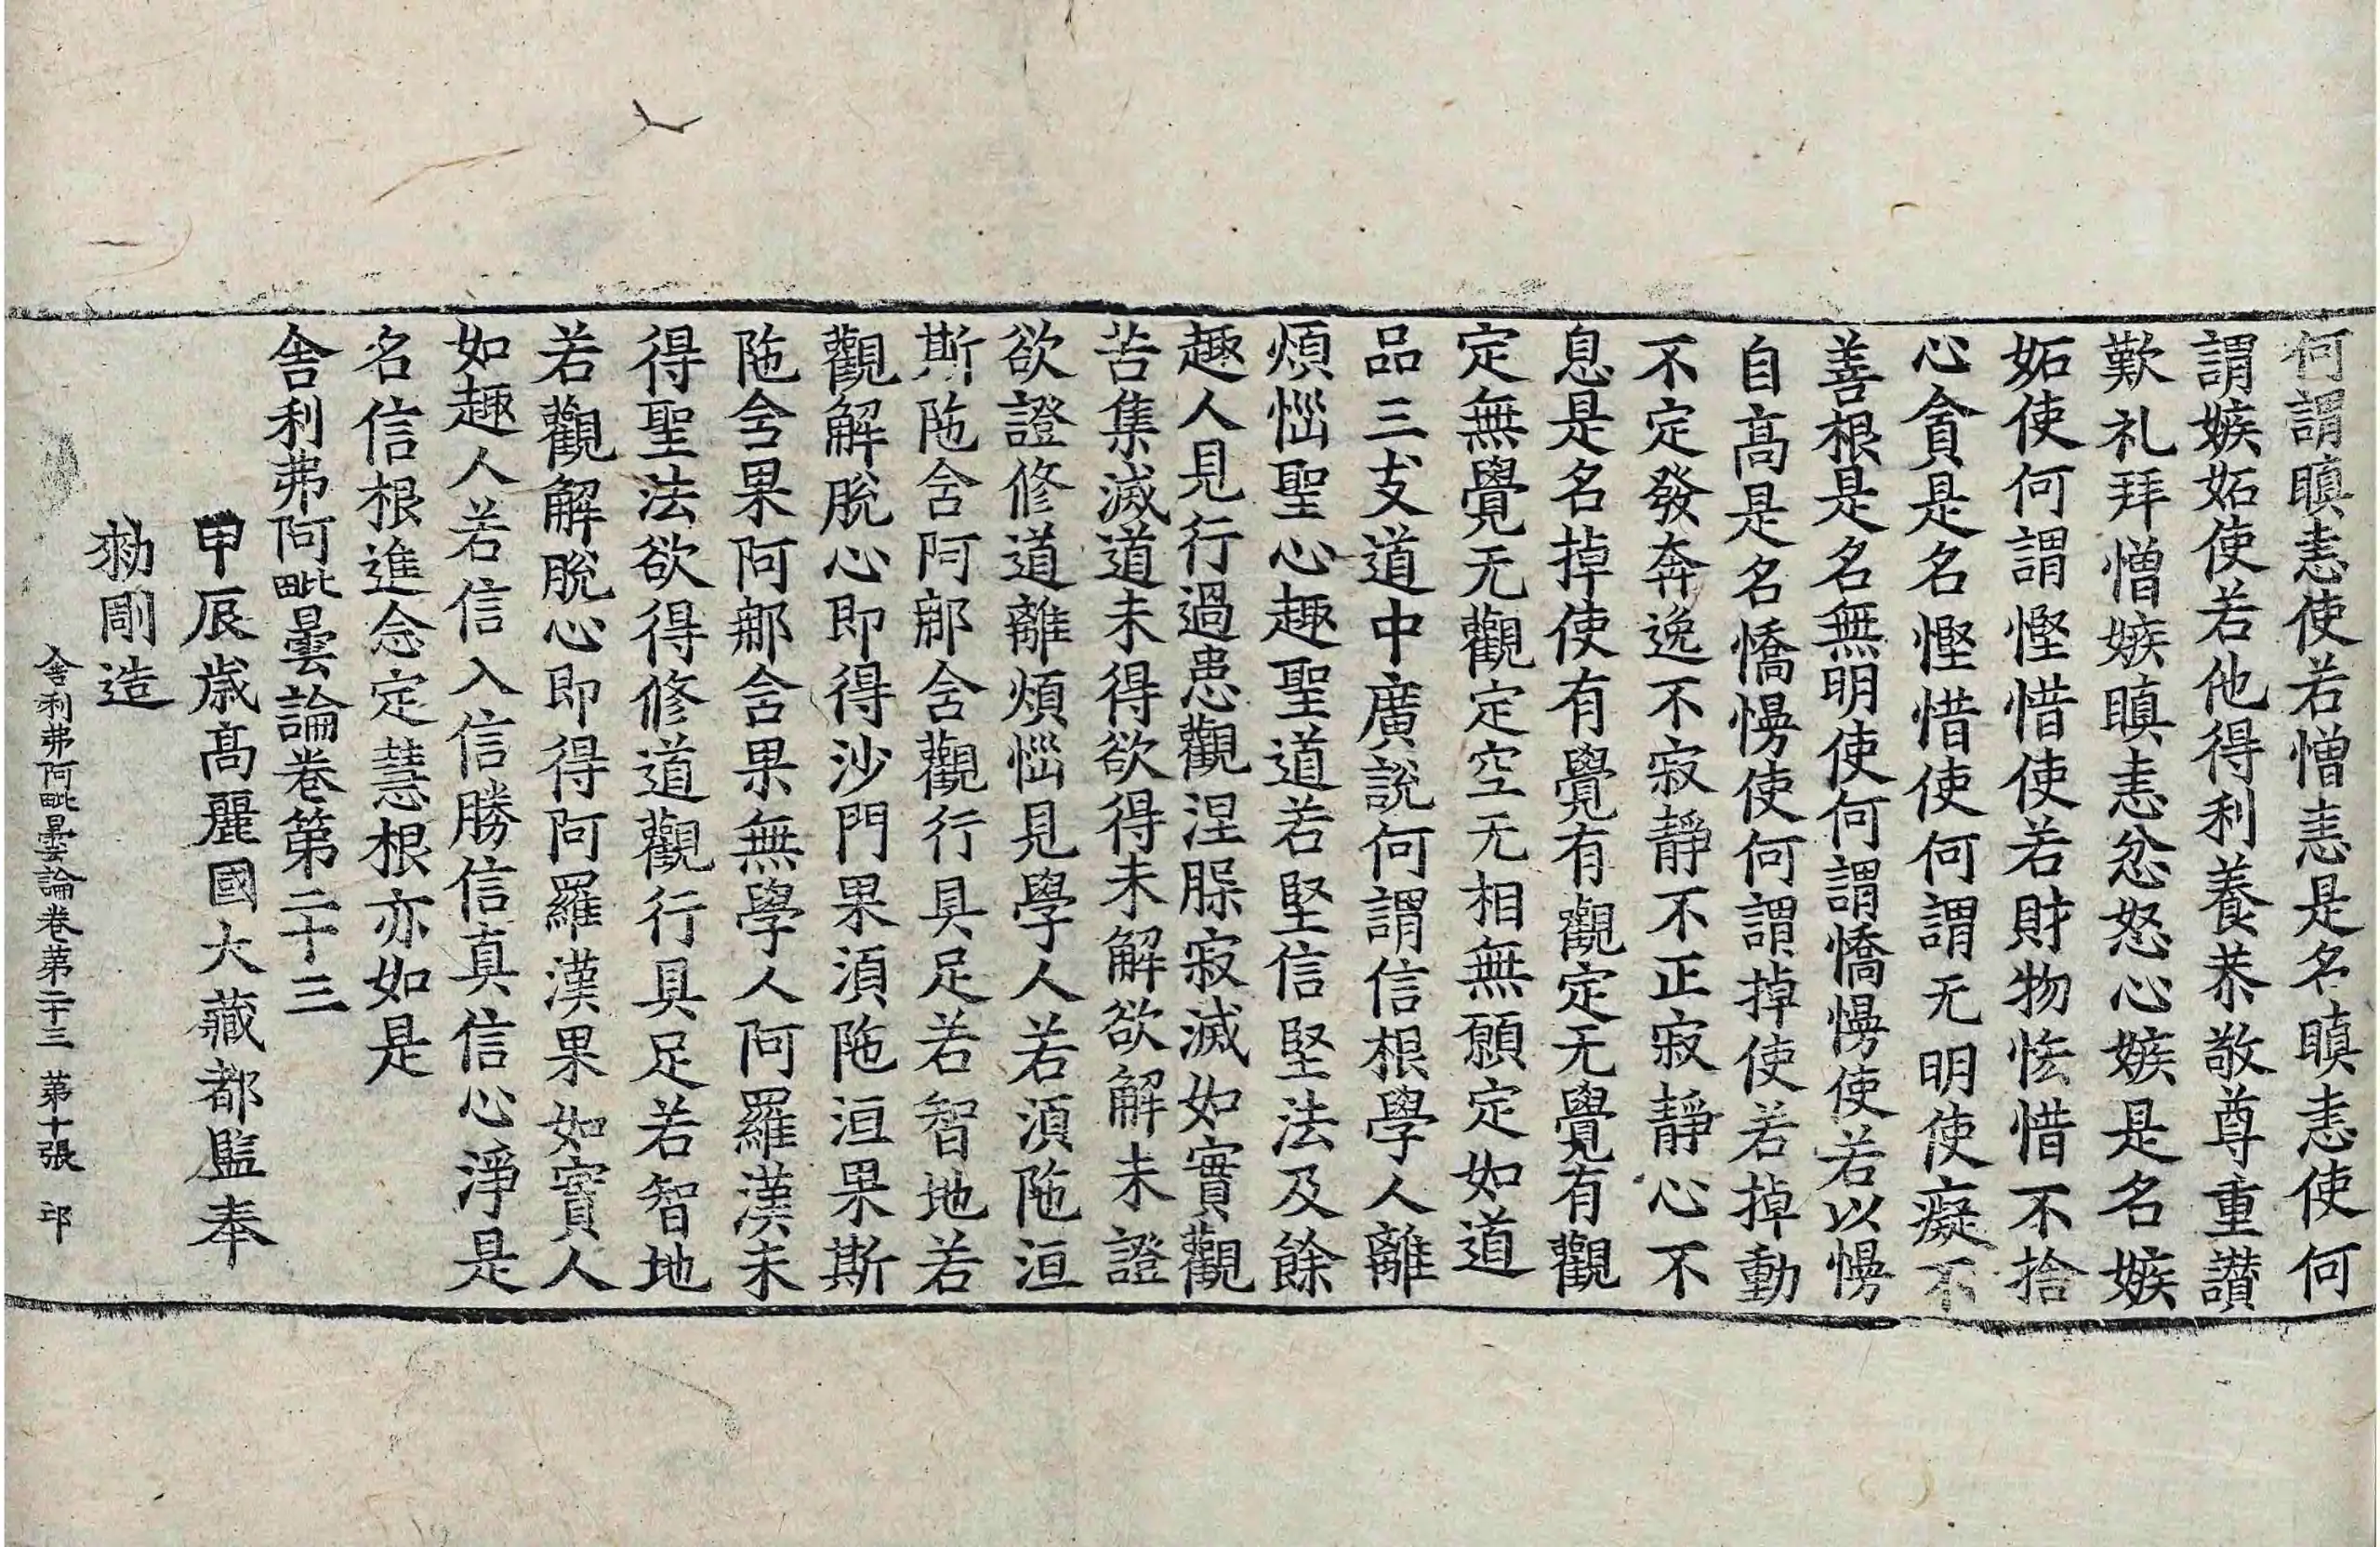 何謂瞋恚使若憎恚是名瞋恚使何
謂嫉妬使若他得利養恭敬尊重讃
歎礼拜憎嫉瞋恚忿怒心嫉是名嫉
妬使何謂慳惜使若財物恡惜不捨
心貪是名慳惜使何謂无明使癡不
善根是名無明使何謂憍慢使若以慢
自髙是名憍慢使何謂掉使若掉動
不定發奔逸不寂靜不正寂靜心不
息是名掉使有覺有觀定无覺有觀
定無覺无觀定空无相無願定如道
品三支道中廣說何謂信根學人離
煩惱聖心趣聖道若堅信堅法及餘
趣人見行過患觀涅槃寂滅如實觀
苦集滅道未得欲得未解欲解未證
欲證修道離煩惱見學人若須陁洹
斯陁含阿那含觀行具足若智地若
觀解脫心即得沙門果須陁洹果斯
陁含果阿那含果無學人阿羅漢未
得聖法欲得修道觀行具足若智地
若觀解脫心即得阿羅漢果如實人
如趣人若信入信勝信真信心淨是
名信根進念定慧根亦如是
舎利弗阿毗曇論卷第二十三
甲辰歲髙麗國大藏都監奉
勑剛造
舎利弗阿毗曇論卷第二十三 第十張